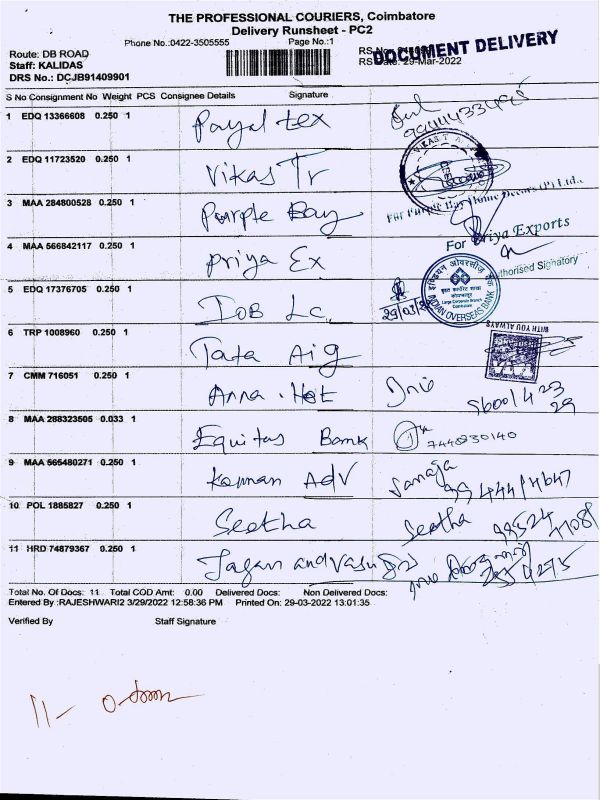 THE PROFESSIONAL COURIERS, Coimbatore
Delivery Runsheet - PC2
Phone No.:0422-3505555 Page No.:1
DOCUMENT DELIVERY
Route: DB ROAD
Staff: KALIDAS 29-Mar-2022
DRS No.: DCJB91409901
S No Consignment No Weight PCS Consignee Details Signature
1 EDQ 13366608 0.250 1 Payal tex
2 EDQ 11723520 0.250 1 Vikas Tr
3 MAA 284800528 0.250 1 Purple Bay
For Purple Bay Home Decors (P) Ltd.,
4 MAA 566842117 0.250 1 Priya Ex
For Priya Exports
Authorised Signatory
5 EDQ 17376705 0.250 1 IOB Lc
इण्डियन ओवरसीज़ बैंक
Large Corporate Branch
Coimbatore
INDIAN OVERSEAS BANK
6 TRP 1008960 0.250 1 Tata Aig
WITH YOU ALWAYS
7 CMM 716051 0.250 1 Anna . Hot
8 MAA 288323505 0.033 1 Equitas Bank
9 MAA 565480271 0.250 1 Kannan Adv
10 POL 1885827 0.250 1 Seetha Seetha
11 HRD 74879367 0.250 1 Jagan and
Total No. Of Docs: 11 Total COD Amt: 0.00 Delivered Docs: Non Delivered Docs:
Entered By :RAJESHWARI2 3/29/2022 12:58:36 PM Printed On: 29-03-2022 13:01:35
Verified By Staff Signature
11-